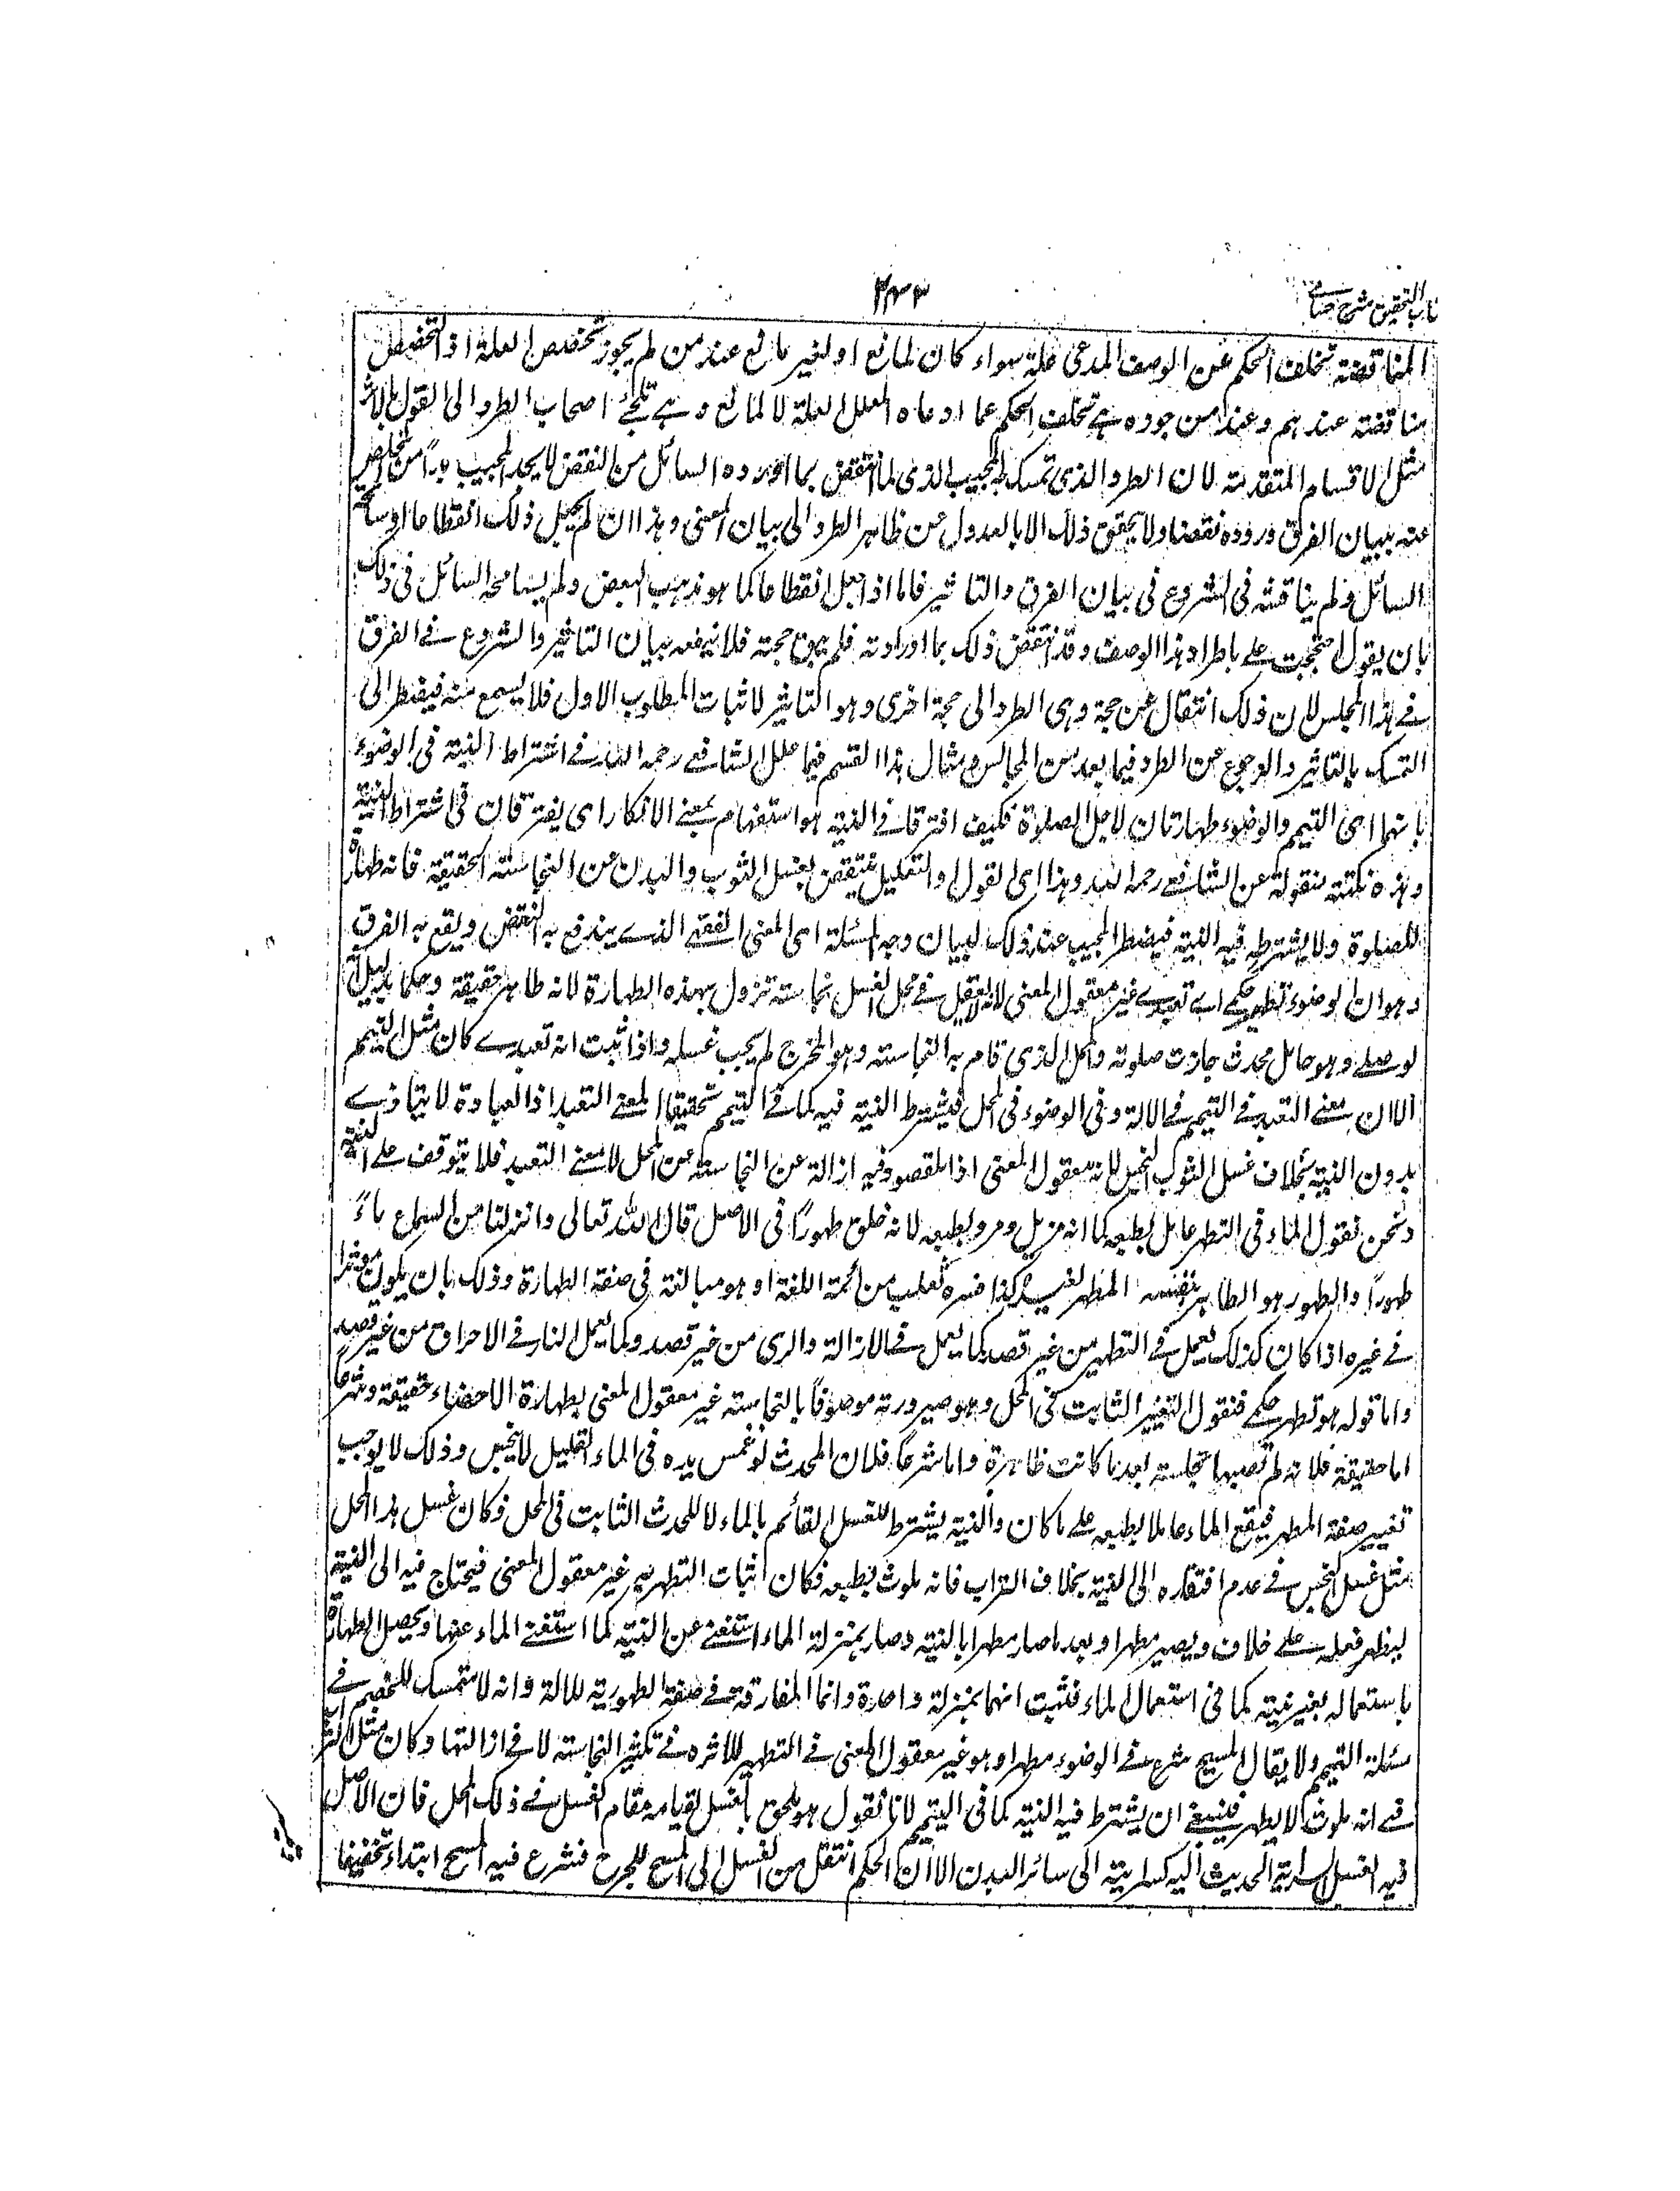 ۲۴۳
المناقضة تخلف الحكم عن الوصف المدعى علة سواء كان لمانع او لغير مانع عند من لم يجوز تخصيص العلة اذ التخصيص
مناقضة عندهم وعند من جوده هے تخلف الحكم عما ادعاه المعلل العلة لا لمانع وهے تلجئ اصحاب الطرد الى القول بالاثر
مثل الاقسام المتقدمة لان الطرد الذى تمسك به المجيب الذى لما انتقض بما اورده السائل من النقض لا يجد المجيب بدا من المخلص
عنه ببيان الفرق وروده نقضا ولا يتحقق ذلك الا بالعدول عن ظاهر الطرد الى بيان المعنى وهذا ان لم يجعل ذلك انقطاعا او سامحه
السائل ولم يناقشه فى الشروع فى بيان الفرق والتاثير فاما اذا جعل انقطاعا كما هو مذهب البعض ولم يسامحه السائل فى ذلك
بان يقول احتججت علے باطراد هذا الوصف وقد انتقض ذلك بما اوردته فلم يبق حجة فلا ينفعه بيان التاثير والشروع فے الفرق
فے هذا المجلس لان ذلك انتقال عن حجة وهى الطرد الى حجة اخرى وهو التاثير لاثبات المطلوب الاول فلا يسمع منه فيضطر الى
التمسك بالتاثير والرجوع عن الطرد فيما بعد من المجالس ومثال هذا القسم فيما علل الشافعے رحمه الله فے اشتراط النية فى الوضوء
بانهما اى التيمم والوضوء طهارتان لاجل الصلوة فكيف افترقا فے النية هو استفهام بمعنے الانكار اى يفترقان فى اشتراط النية
وهذه نكتة منقولة عن الشافعے رحمه الله وهذا اى القول والتعليل منتقض بغسل الثوب والبدن عن النجاسة الحقيقية فانه طهارة
للصلوة ولا يشترط فيه النية فيضطر المجيب عند ذلك لبيان وجه المسئلة اى المعنى الفقهے الذے يندفع به النقض ويقع به الفرق
وهو ان الوضوء تطهير حكمے اے تعبدے غير معقول المعنى لانه لا يعقل فے محل الغسل نجاسة تزول بهذه الطهارة لانه طاهر حقيقة وحكما بدليل انه
لو صلے وهو حامل محدث جازت صلوته والمحل الذى قام به النجاسة وهو المخرج لم يجب غسله واذا ثبت انه تعبدے كان مثل التيمم
الا ان معنے التعبد فے التيمم فے الالة وفى الوضوء فى المحل فيشترط النية فيه كما فے التيمم تحقيقا لمعنے التعبد اذ العبادة لا يتادے
بدون النية بخلاف غسل الثوب النجس لانه معقول المعنى اذ المقصود فيه ازالة عن النجاسة عن المحل لا معنے التعبد فلا يتوقف علے النية
ونحن نقول الماء فى التطهر عامل بطبعه كما انه مزيل ومرو بطبعه لانه خلق طهورا فى الاصل قال الله تعالى وانزلنا من السماء ماءً
طهوراً والطهور هو الطاهر بنفسه المطهر لغيره كذا فسره ثعلب من ائمة اللغة او هو مبالغة فى صفة الطهارة وذلك بان يكون مؤثرا
فے غيره اذا كان كذلك يعمل فے التطهير من غير قصد كما يعمل فے الازالة والرى من غير قصد وكما يعمل النار فے الاحراق من غير قصد
واما قوله هو تطهر حكمے فنقول التغير الثابت فى المحل وهو صيرورته موصوفاً بالنجاسة غير معقول المعنى بطهارة الاعضاء حقيقة وشرعا
اما حقيقة فلانه لم تصبها نجاسة بعد ما كانت ظاهرة واما شرعا فلان المحدث لو غمس يده فى الماء القليل لا ينجس وذلك لا يوجب
تغيير صفة المطهر فيقع الماء عاملا بطبعه علے ما كان والنية يشترط للغسل القائم بالماء لا للحدث الثابت فى المحل وكان غسل هذا المحل
مثل غسل النجس فے عدم افتقاره الى النية بخلاف التراب فانه ملوث بطبعه فكان اثبات التطهير به غير معقول المعنى فيحتاج فيه الى النية
ليظهر فعله علے خلاف ويصير مطهرا وبعد ما صار مطهرا بالنية وصار بمنزلة الماء استغنے عن النية كما استغنے الماء عنها ويحصل الطهارة
باستعماله بغير نية كما فى استعمال الماء فثبت انهما بمنزلة واحدة وانما المفارقة فے صفة الطهورية للالة وانه لا متمسك للخصم فے
مسئلة التيمم ولا يقال المسح شرع فے الوضوء مطهرا وهو غير معقول المعنى فے التطهير للاثره فے تكثير النجاسة لا فے ازالتها وكان مثل
فے انه ملوث لا يطهر فينبغے ان يشترط فيه النية كما فى التيمم لانا نقول هو ملحق بالغسل لقيامه مقام الغسل فے ذلك المحل فان الاصل
فيه الغسل لسراية الحديث اليه كسرايته الى سائر البدن الا ان الحكم انتقل من الغسل الى المسح للحرج فشرع فيه المسح ابتداء تخفيفا